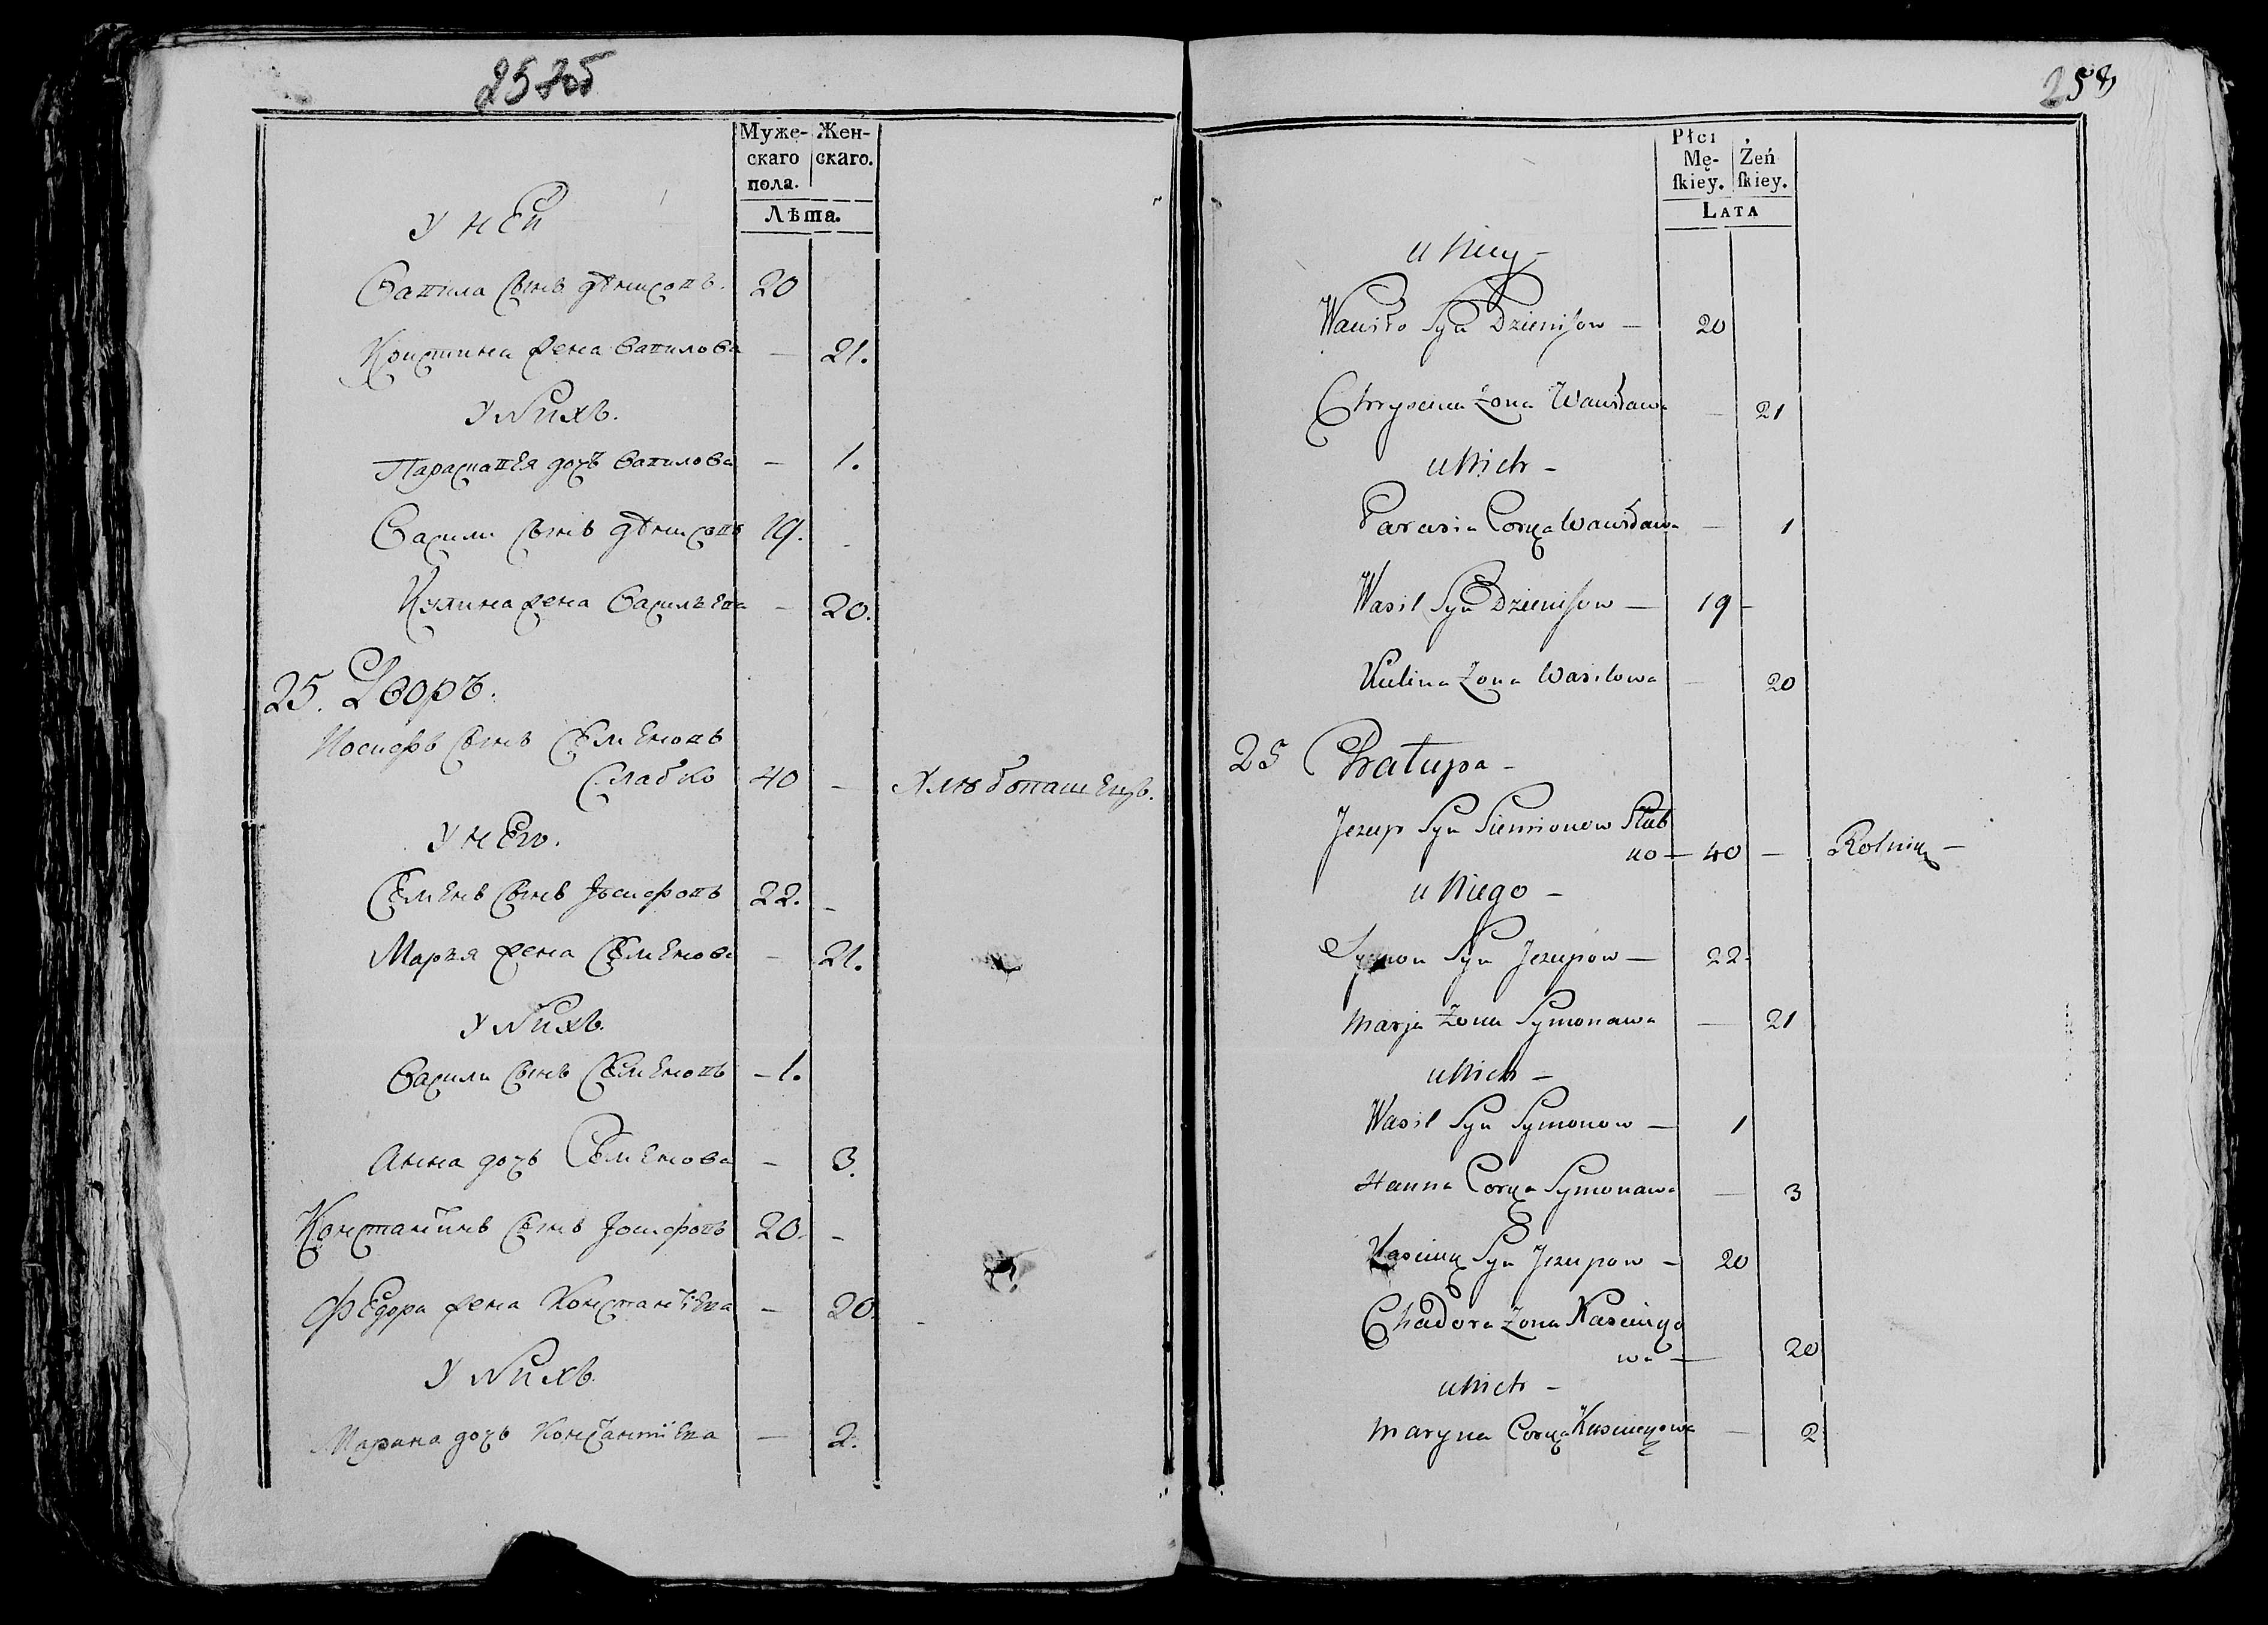 257об
Муже- Жен-
скаго скаго.
пола.
Лѣта.
У ней
Вавила сынъ Дѣнисовъ. 20
Кристина жена Вавилова — 21.
У нихъ.
Парасковея дочь Вавилова — 1.
Васили сынъ Дѣнисовъ 19. -
Кулина жена Васильева — 20.
25. Дворъ.
Иосифъ сынъ Семеновъ
Слабко 40 — Хлюбопашецъ.
У него.
Семенъ сынъ Іосифовъ 22. -
Марья жена Семенова — 21.
У нихъ.
Васили сынъ Семеновъ — 1.
Анна дочь Семенова — 3.
Константинъ сынъ Іосифовъ 20. -
Федора жена Константіева — 20.
У нихъ.
Марина дочь Константіева — 2.
258
Płci
Mę- Żeń
ſkiey. ſkiey.
LATA
u Niey —
Wawiło Syn Dzienisow — 20
Chryscina Żona Wawiława — 21
u Nich —
Parasia Corka Wawiława — 1
Wasil Syn Dzienisow — 19 -
Kulina Żona Wasilowa — 20
25 Chałupa —
Jezup Syn Siemionow Słab
ko — 40 — Rolnik —
u Niego —
Symon Syn Jezupow — 22 -
Marja Żona Symonawa — 21
u Nich —
Wasil Syn Symonow — 1
Hanna Corka Symonawa — 3
Kasciuk Syn Jezupow — 20
Chadora Żona Kasciuko
wa — 20
u Nich —
Maryna Corka Kasciukowa — 2